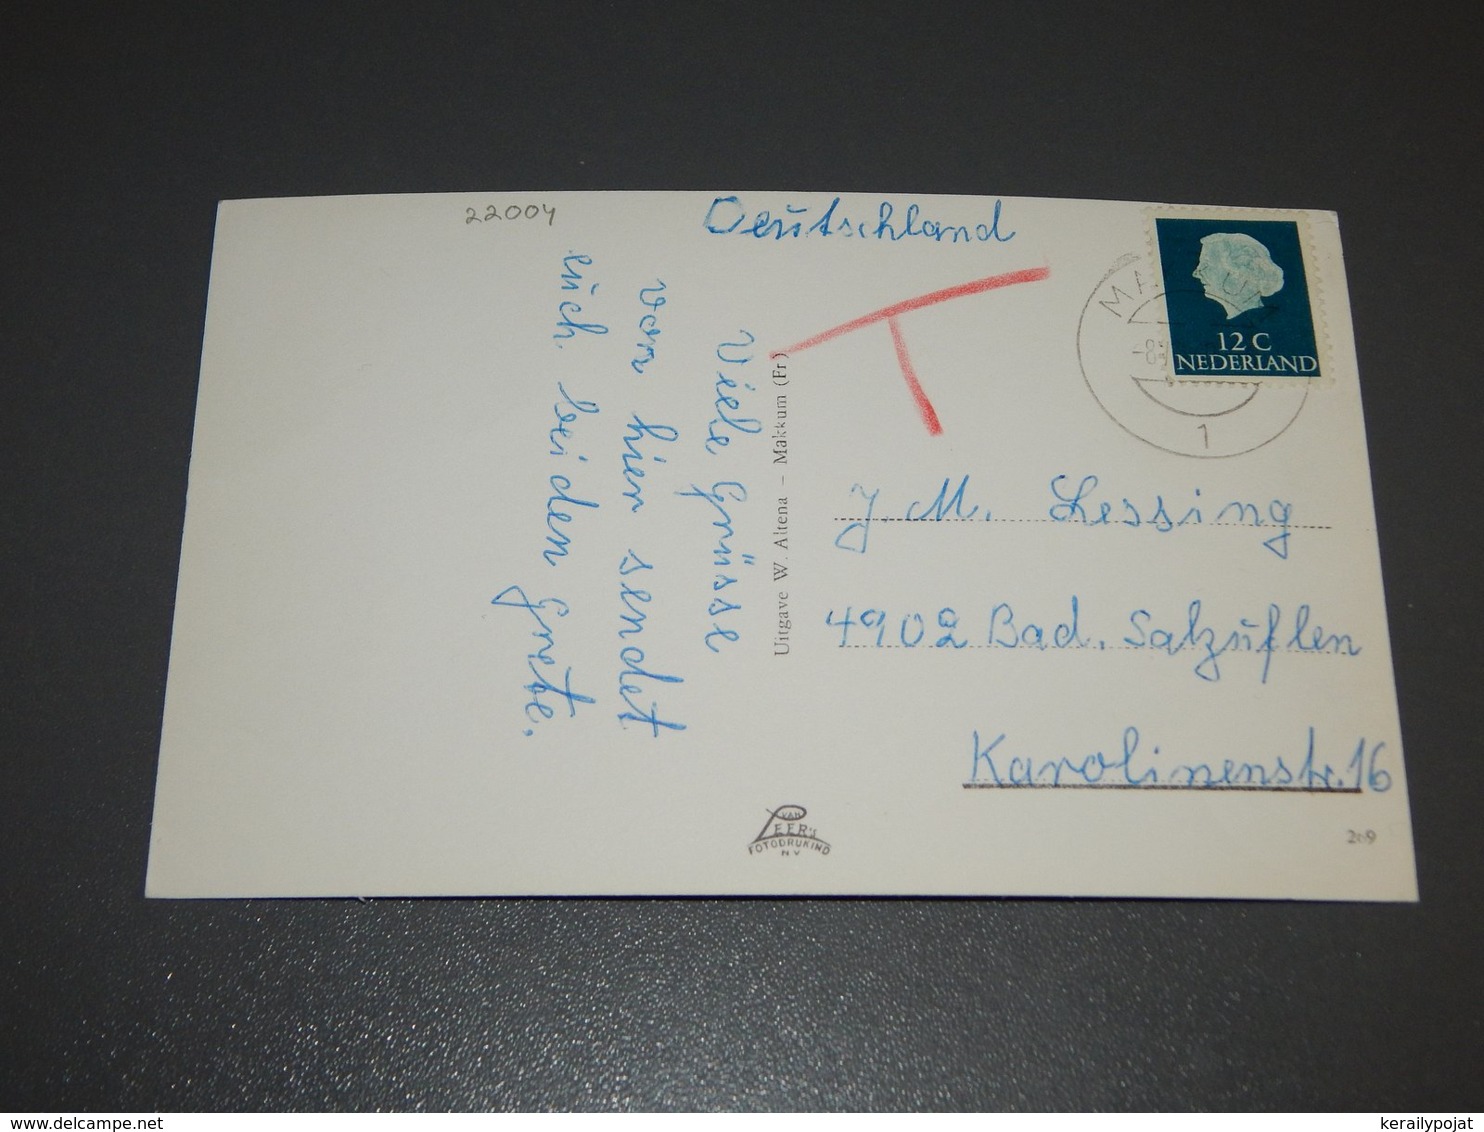 22004
Deutschland
12 C
NEDERLAND
1
Viele Grüsse
von hier sendet
euch beiden Grete.
Uitgave W. Altena – Makkum (Fr)
T
J. M. Lessing
4902 Bad. Salzuflen
Karolinenstr. 16
VAN
LEER's
FOTODRUKIND
N V
209
kerailypojat